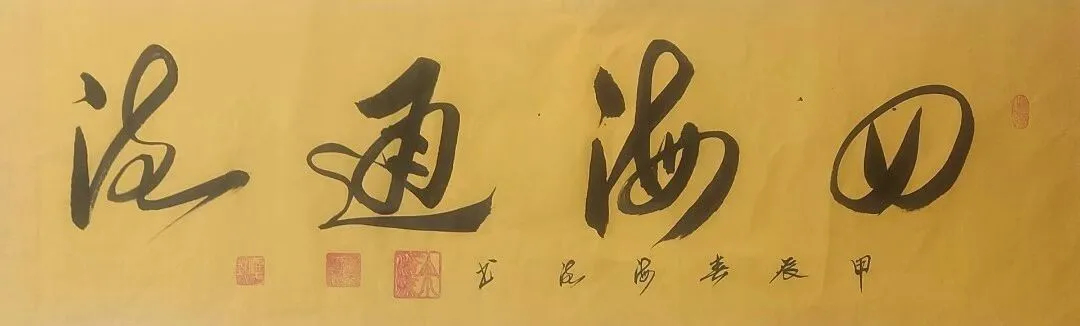 四海通
甲辰春海 书